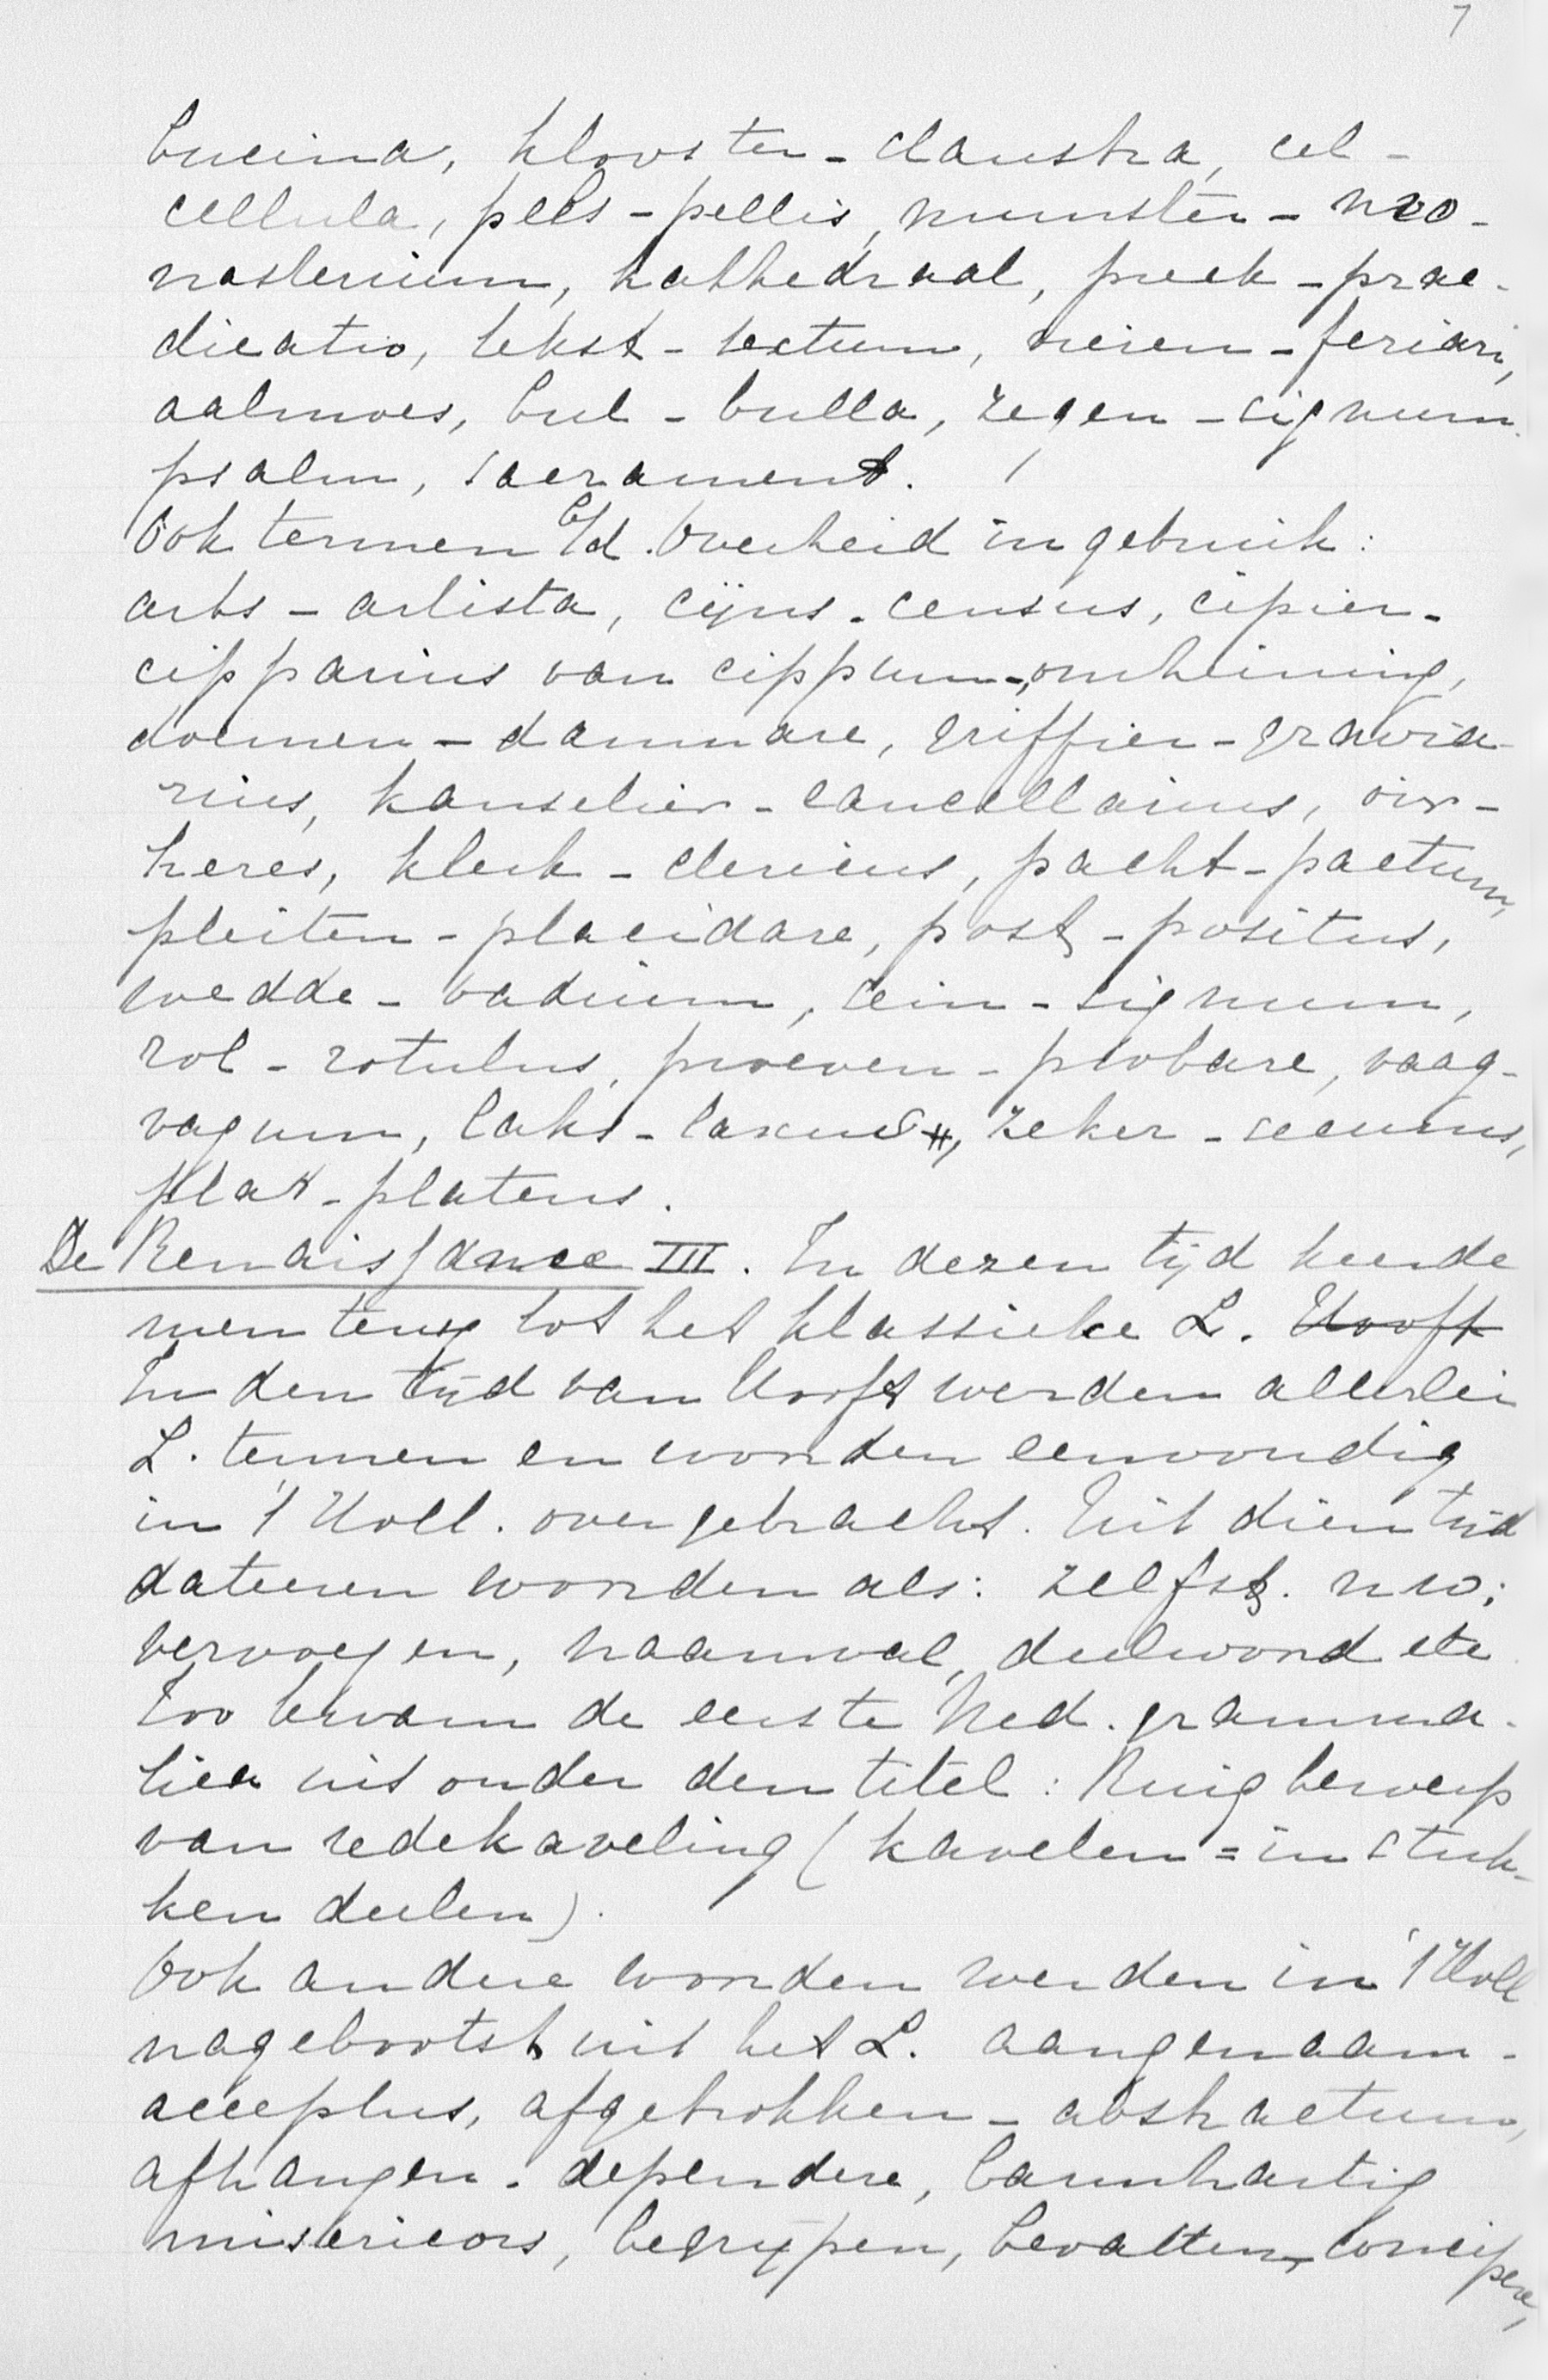 7
bucina, klooster - claustra, cel -
cellula, pels - pellis, munster - mo-
nasterium, kathedraal, preek - prae-
dicatio, tekst - textum, vieren - feriari,
aalmoes, bul - bulla, zegen - signum
psalm, sacrament.
Ook termen b/d. Overheid in gebruik:
arts - artista, cijns - census, cipier -
cipparius van cippum - omheining,
doemen - damnare, griffier - grawia-
rius, kanselier - cancellarius, oir -
heres, klerk - clericus, pacht - pactum,
pleiten - placidare, post - positus,
wedde - vadium, sein - signum,
rol - rotulus, proeven - probare, vaag -
vagum, laks - laxus, zeker - securus,
plat - platens.
De Renaissance III. In dezen tijd keerde
men terug tot het klassieke L. Hooft
In den tijd van Hooft werden allerlei
L. termen en woorden eenvoudig
in 't Holl. overgebracht. Uit dien tijd
dateeren woorden als: zelfst. nw;
vervoegen, naamval, deelwoord etc
Zoo kwam de eerste Ned. gramma-
tica uit onder den titel: Ruig bewerp
van redekaveling (kavelen = in stuk-
ken deelen).
Ook andere woorden werden in 't Holl
nagebootst uit het L. aangenaam -
acceptus, afgetrokken - abstractum,
afhangen - dependere, barmhartig
misericors, begrypen, bevatten, concipere,